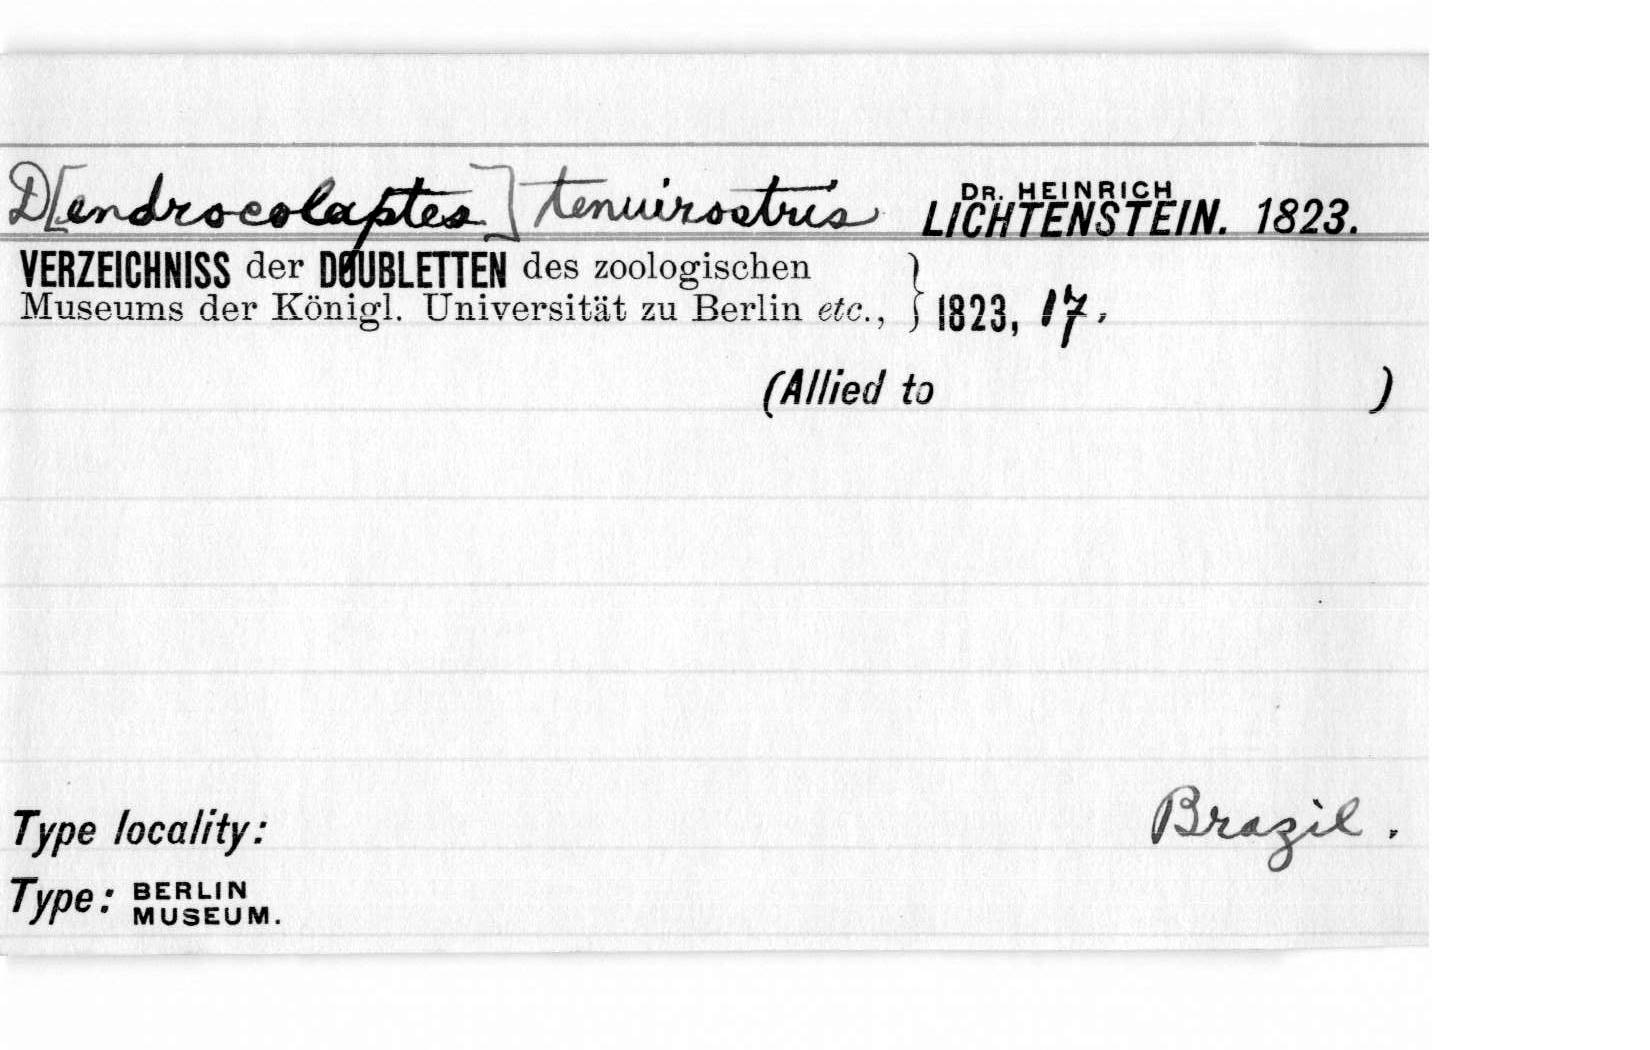 D[endrocolaptes] tenuirostris DR. HEINRICH LICHTENSTEIN. 1823.
VERZEICHNISS der DOUBLETTEN des zoologischen
Museums der Königl. Universität zu Berlin etc., } 1823, 17.
(Allied to )
Type locality: Brazil.
Type: BERLIN MUSEUM.